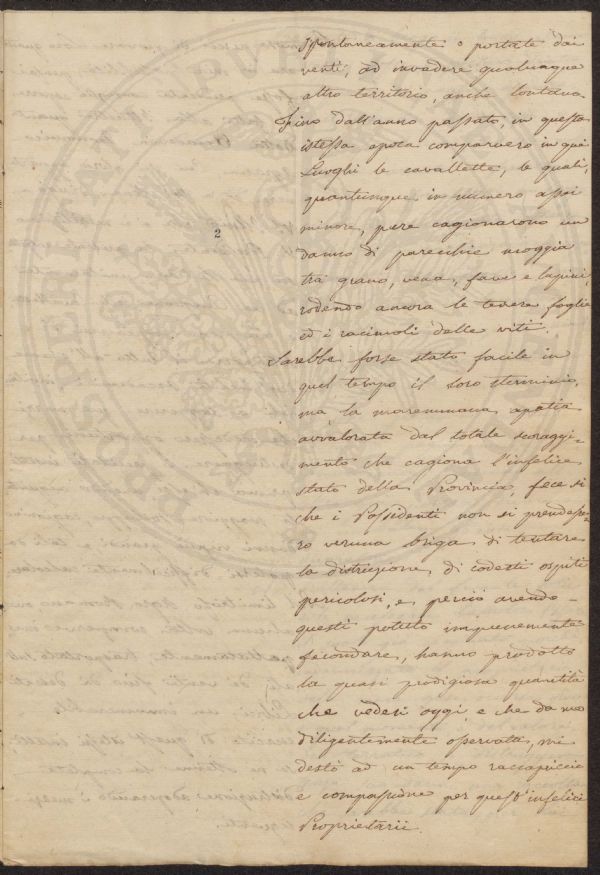 spontaneamente o portate dai
venti, ad invadere qualunque
altro territorio, anche lontano.
Fino dall'anno passato, in questa
istessa epoca comparvero in quei
Luoghi le cavallette, le quali,
quantunque in numero assai
minore, pure cagionarono un
danno di parecchie moggia
trà grano, vena, fave e lupini,
rodendo ancora le tenere foglie
ed i racimoli delle viti.
2
Sarebbe forse stato facile in
quel tempo il loro sterminio,
ma la maremmana apatia
avvalorata dal totale scoraggi-
mento che cagiona l'infelice
stato della Provincia, fece si
che i Possidenti non si prendesse-
ro veruna briga di tentare
la distruzione di codesti ospiti
pericolosi, e perciò avendo
questi potuto impunemente
fecondare, hanno prodotto
la quasi prodigiosa quantità
che vedesi oggi e che da me
diligentemente osservata, mi
destò ad un tempo raccapriccio
e compassione per quest'infelici
Proprietarii.